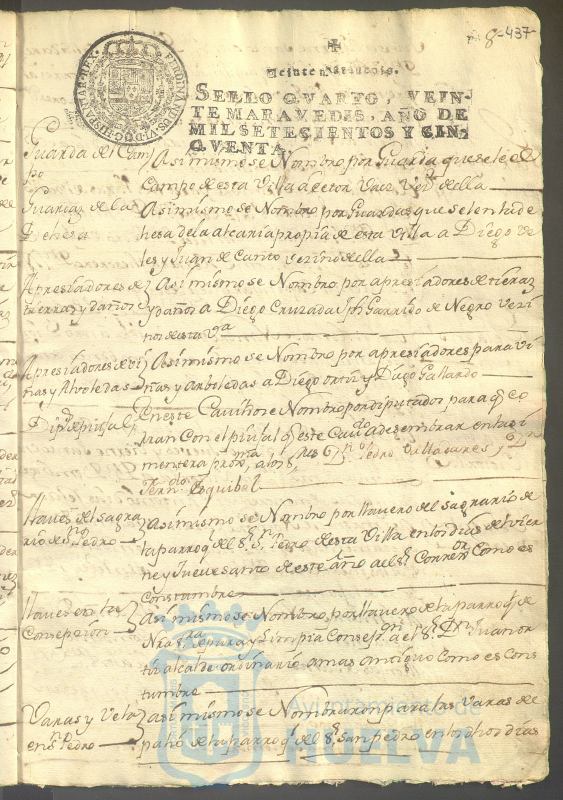 8-437
Veinte maravedis.
SELLO QVARTO, VEIN-
TE MARAVEDIS, AÑO DE
MIL SETECIENTOS Y CIN-
QVENTA.
FERDINANDUS VI D G HISPANIAR REX
Guarda del Cam
po
Asimismo se Nombro por Guarda que sele el
Campo de esta Villa a
Vaez Vez.º de ella
Guardas de la
Dehesa
Asimismo se Nombro por Guardas que selen la de
hesa de la alcaria propia de esta Villa a Diego
y Juan de vezino de ella
Apresiadores de
tierras y daños
Asimismo se Nombro, por apresiadores de tieras
y daños a Diego Cruzada Jph Garrido de Negro Vezi
nos de esta Vª
Apresiadores de vi
ñas y Alvoledas
Asimismo se Nombro por apresiadores para vi
ñas y arboledas a Diego ortiz y Diego Gallardo
Dip.ᵈᵒˢ
en este Cavildo se Nombro por diputados para q.ᵉ co
rran Con el q.ᵉ este Cav.ᵈᵒ a de sembrar en la si
mentera prox.ᵐᵃ a los S.ʳᵉˢ D.ⁿ Pedro Villasares y D.ⁿ
Esquibal
llaves del sagra
rio de S.ⁿ Pedro
Asimismo se Nombro por llavero del sagrario de
la parroq.ˡ del S.ʳ S.ⁿ Pedro de esta Villa en los dias de vier
ne y Jueves anto de este año a el S.ʳ Corre.ᵒʳ Como es
Constumbre
llaves en la
Consepcion
Asi mismo se Nombro, por llavero de la parroq.ˡ de
Nra S.ʳᵃ de pura y Limpia Consep.ᵒⁿ a el S.ʳ D.ⁿ Juan or
tiz alcalde ordinario, a mas antiguo Como es Cons
tumbre
Varas y Vela
en S.ⁿ Pedro
asi mismo se Nombraron para las Varas de
palio de la parroq.ˡ de S.ʳ san pedro en dichos dias
Ayuntamiento de
HUELVA